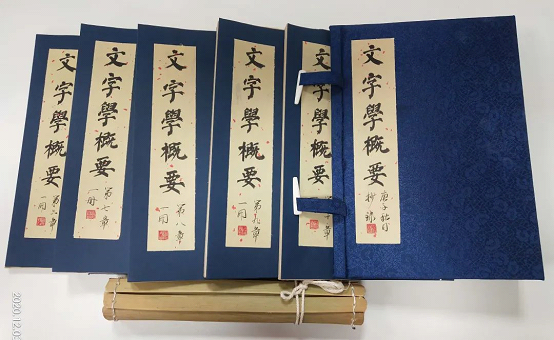 文字學概要
一冊
文字學概要
第七章
一冊
文字學概要
第八章
一冊
文字學概要
第九章
一冊
文字學概要
章
文字學概要
庚子
抄錄